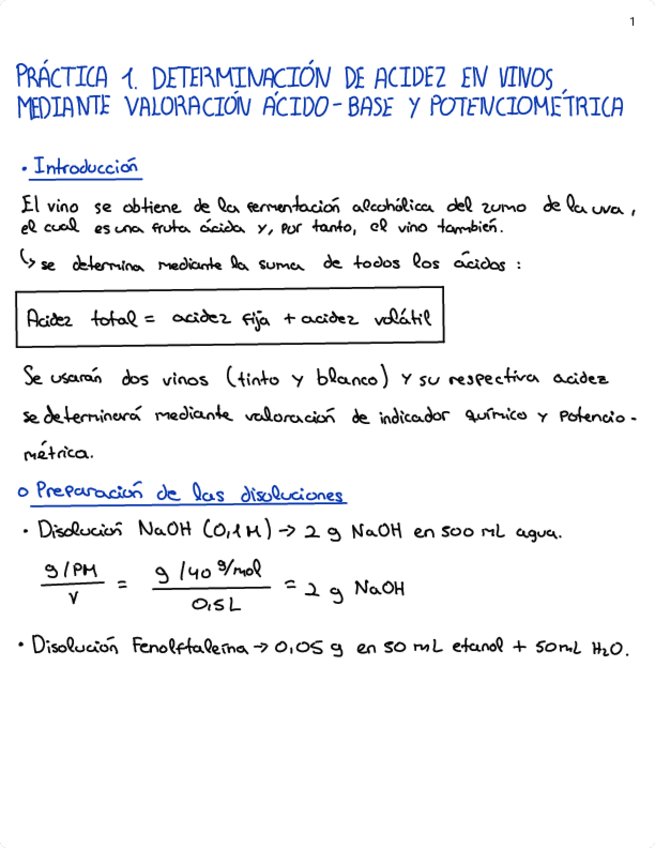 1
PRÁCTICA 1. DETERMINACIÓN DE ACIDEZ EN VINOS
MEDIANTE VALORACIÓN ÁCIDO-BASE Y POTENCIOMÉTRICA
• Introducción
El vino se obtiene de la fermentación alcohólica del zumo de la uva,
el cual es una fruta ácida y, por tanto, el vino también.
↳ se determina mediante la suma de todos los ácidos :
Acidez total = acidez fija + acidez volátil
Se usarán dos vinos (tinto y blanco) y su respectiva acidez
se determinará mediante valoración de indicador químico y potencio-
métrica.
o Preparación de las disoluciones
• Disolución NaOH (0,1M) → 2 g NaOH en 500 mL agua.
g/PM / V = g/40 g/mol / 0,5L = 2 g NaOH
• Disolución Fenolftaleína → 0,05 g en 50 mL etanol + 50mL H₂O.